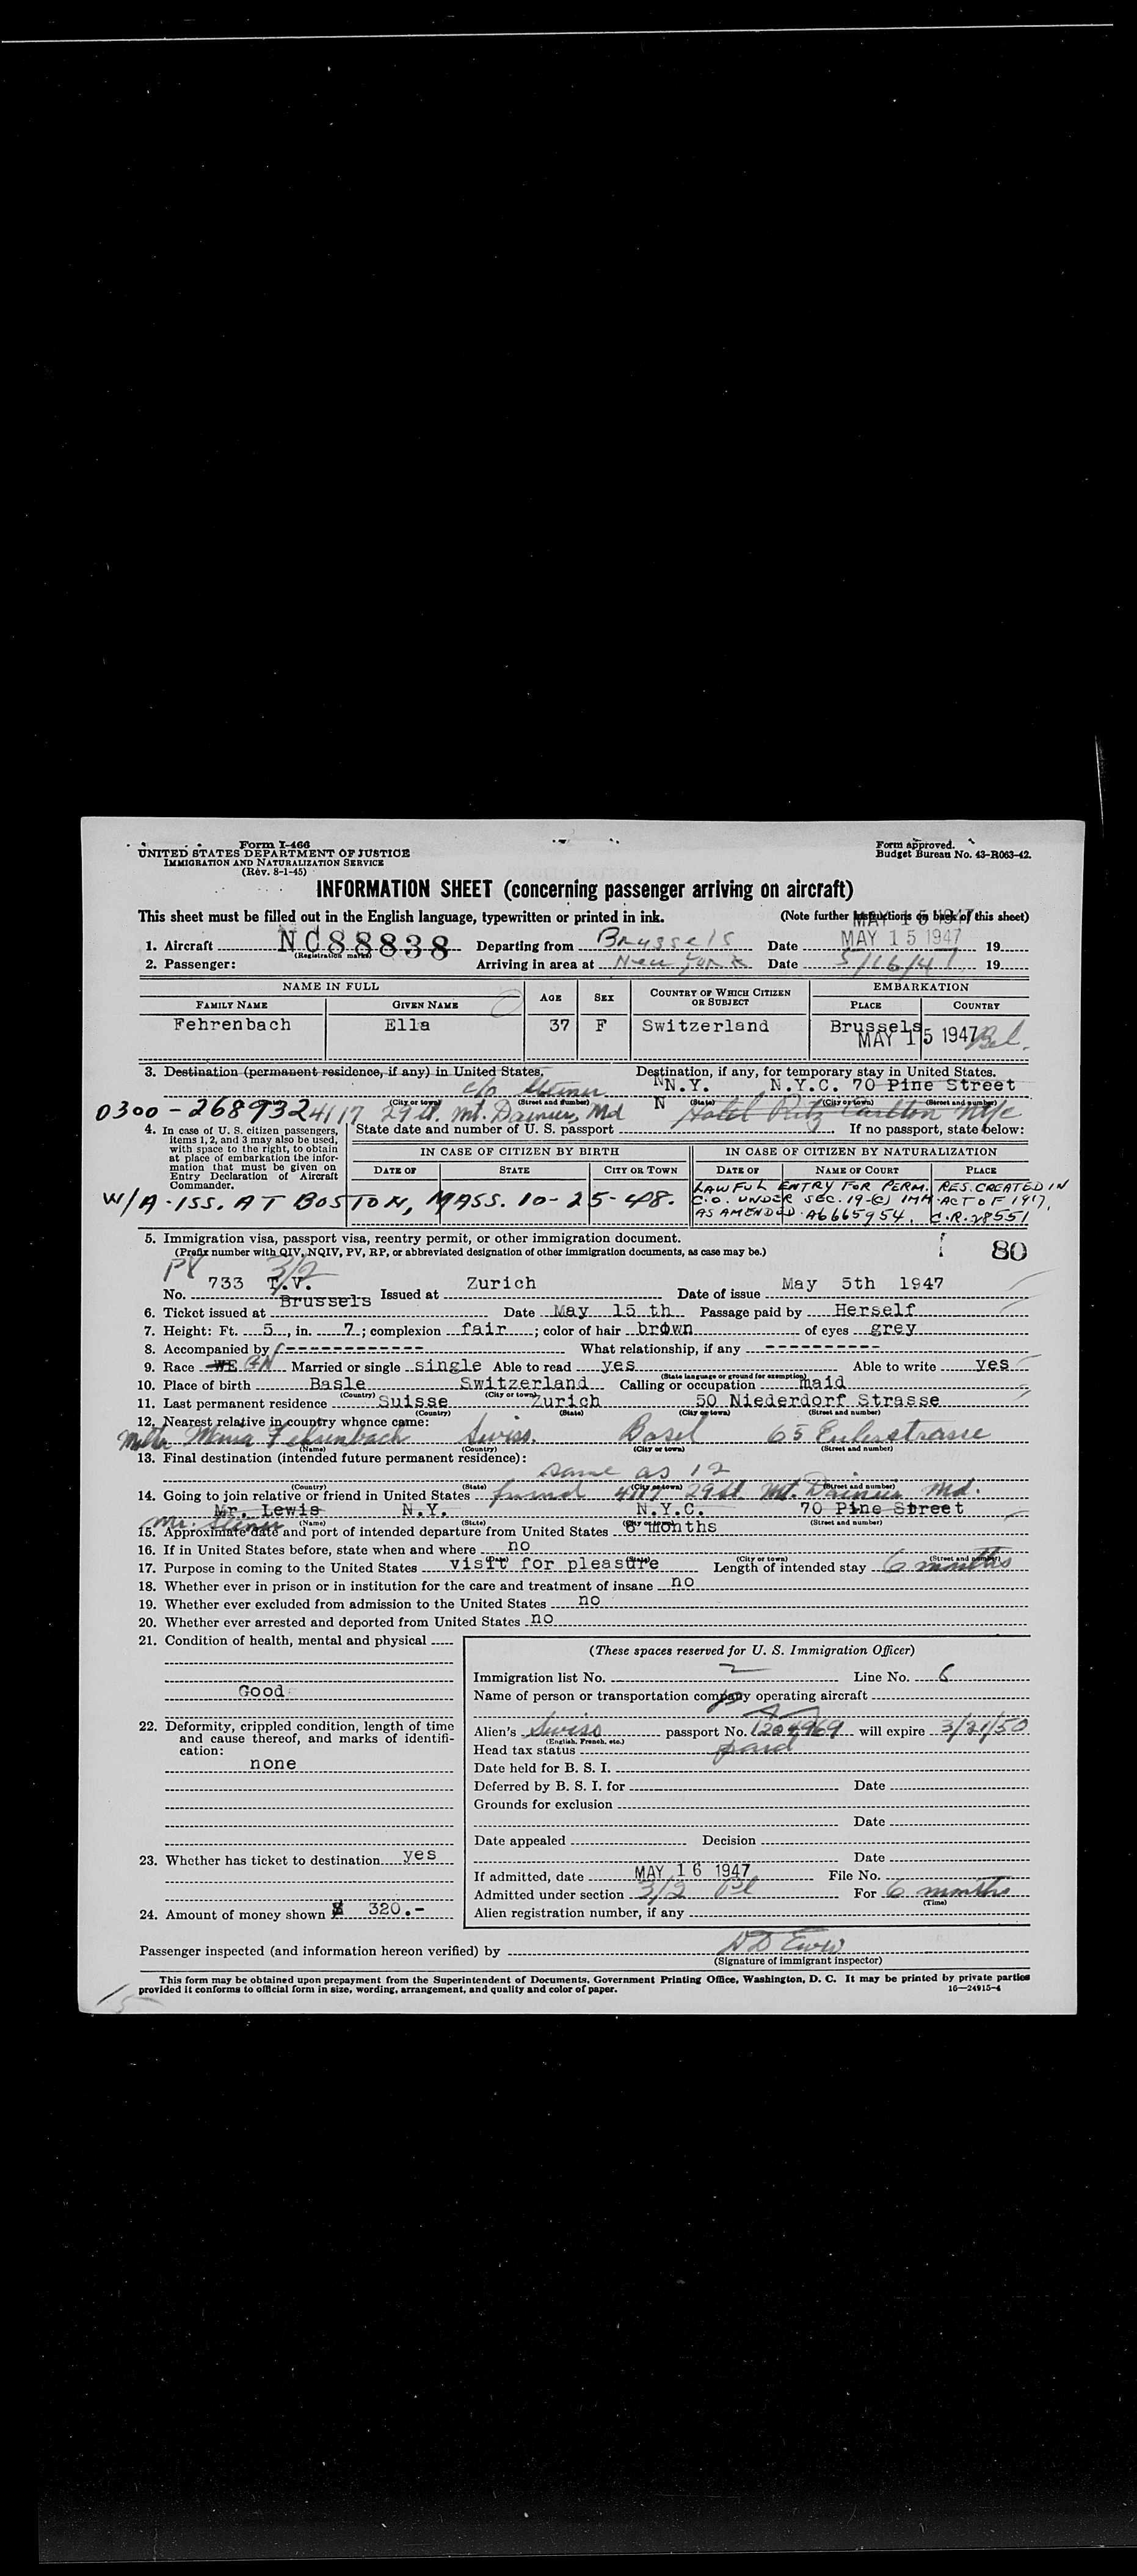 Form I-466
UNITED STATES DEPARTMENT OF JUSTICE
IMMIGRATION AND NATURALIZATION SERVICE
(Rev. 8-1-45)
Form approved.
Budget Bureau No. 43-R063-42.
INFORMATION SHEET (concerning passenger arriving on aircraft)
This sheet must be filled out in the English language, typewritten or printed in ink. (Note further instructions on back of this sheet)
MAY 15 1947
1. Aircraft NC88838 Departing from Brussels Date MAY 15 1947 19
(Registration marks)
2. Passenger: Arriving in area at New York Date 5/16/47 19
NAME IN FULL AGE SEX COUNTRY OF WHICH CITIZEN OR SUBJECT EMBARKATION
FAMILY NAME GIVEN NAME PLACE COUNTRY
Fehrenbach Ella 37 F Switzerland Brussels Bel.
MAY 15 1947
3. Destination (permanent residence, if any) in United States. Destination, if any, for temporary stay in United States.
c/o Steiner N.Y. N.Y.C. 70 Pine Street
(City or town) (Street and number) (State) (City or town) (Street and number)
0300-268932 4117 29 St. Mt. Rainier, Md N Hotel Ritz Carlton NYC
4. In case of U. S. citizen passengers, items 1, 2, and 3 may also be used, with space to the right, to obtain at place of embarkation the information that must be given on Entry Declaration of Aircraft Commander.
State date and number of U. S. passport If no passport, state below:
IN CASE OF CITIZEN BY BIRTH IN CASE OF CITIZEN BY NATURALIZATION
DATE OF STATE CITY OR TOWN DATE OF NAME OF COURT PLACE
W/A-ISS. AT BOSTON, MASS. 10-25-48.
LAWFUL ENTRY FOR PERM. RES. CREATED IN
C.O. UNDER SEC. 19-(c) IMM. ACT OF 1917,
AS AMENDED. A6665954. C.R. 28551
5. Immigration visa, passport visa, reentry permit, or other immigration document.
(Prefix number with QIV, NQIV, PV, RP, or abbreviated designation of other immigration documents, as case may be.) 80
PV 3/2
No. 733 T.V. Issued at Zurich Date of issue May 5th 1947
6. Ticket issued at Brussels Date May 15 th Passage paid by Herself
7. Height: Ft. 5, in. 7; complexion fair; color of hair brown of eyes grey
8. Accompanied by ------------ What relationship, if any ----------
9. Race WE GN Married or single single Able to read yes Able to write yes
(State language or ground for exemption)
10. Place of birth Basle Switzerland Calling or occupation maid
(Country) (City or town)
11. Last permanent residence Suisse Zurich 50 Niederdorf Strasse
(Country) (State) (City or town) (Street and number)
12. Nearest relative in country whence came:
Mother Fehrenbach Swiss. Basel 65 Eulerstrasse
(Name) (Country) (City or town) (Street and number)
13. Final destination (intended future permanent residence):
same as 12
(Country) (State) (City or town) (Street and number)
14. Going to join relative or friend in United States friend 4117 29 St Mt. Rainier Md.
Mr. Lewis N.Y. N.Y.C. 70 Pine Street
Mr. Steiner (Name) (State) (City or town) (Street and number)
15. Approximate date and port of intended departure from United States 6 months
16. If in United States before, state when and where no
(Date) (State) (City or town) (Street and number)
17. Purpose in coming to the United States visit for pleasure Length of intended stay 6 months
18. Whether ever in prison or in institution for the care and treatment of insane no
19. Whether ever excluded from admission to the United States no
20. Whether ever arrested and deported from United States no
21. Condition of health, mental and physical
Good
22. Deformity, crippled condition, length of time and cause thereof, and marks of identification:
none
23. Whether has ticket to destination yes
24. Amount of money shown $ 320.-
(These spaces reserved for U. S. Immigration Officer)
Immigration list No. 2 Line No. 6
Name of person or transportation company operating aircraft
Alien's Swiss passport No. 1204969 will expire 3/21/50
(English, French, etc.)
Head tax status paid
Date held for B. S. I.
Deferred by B. S. I. for Date
Grounds for exclusion
Date
Date appealed Decision
Date
If admitted, date MAY 16 1947 File No.
Admitted under section 3/2 For 6 months
(Time)
Alien registration number, if any
Passenger inspected (and information hereon verified) by
(Signature of immigrant inspector)
This form may be obtained upon prepayment from the Superintendent of Documents, Government Printing Office, Washington, D. C. It may be printed by private parties
provided it conforms to official form in size, wording, arrangement, and quality and color of paper. 16—24915-4
15